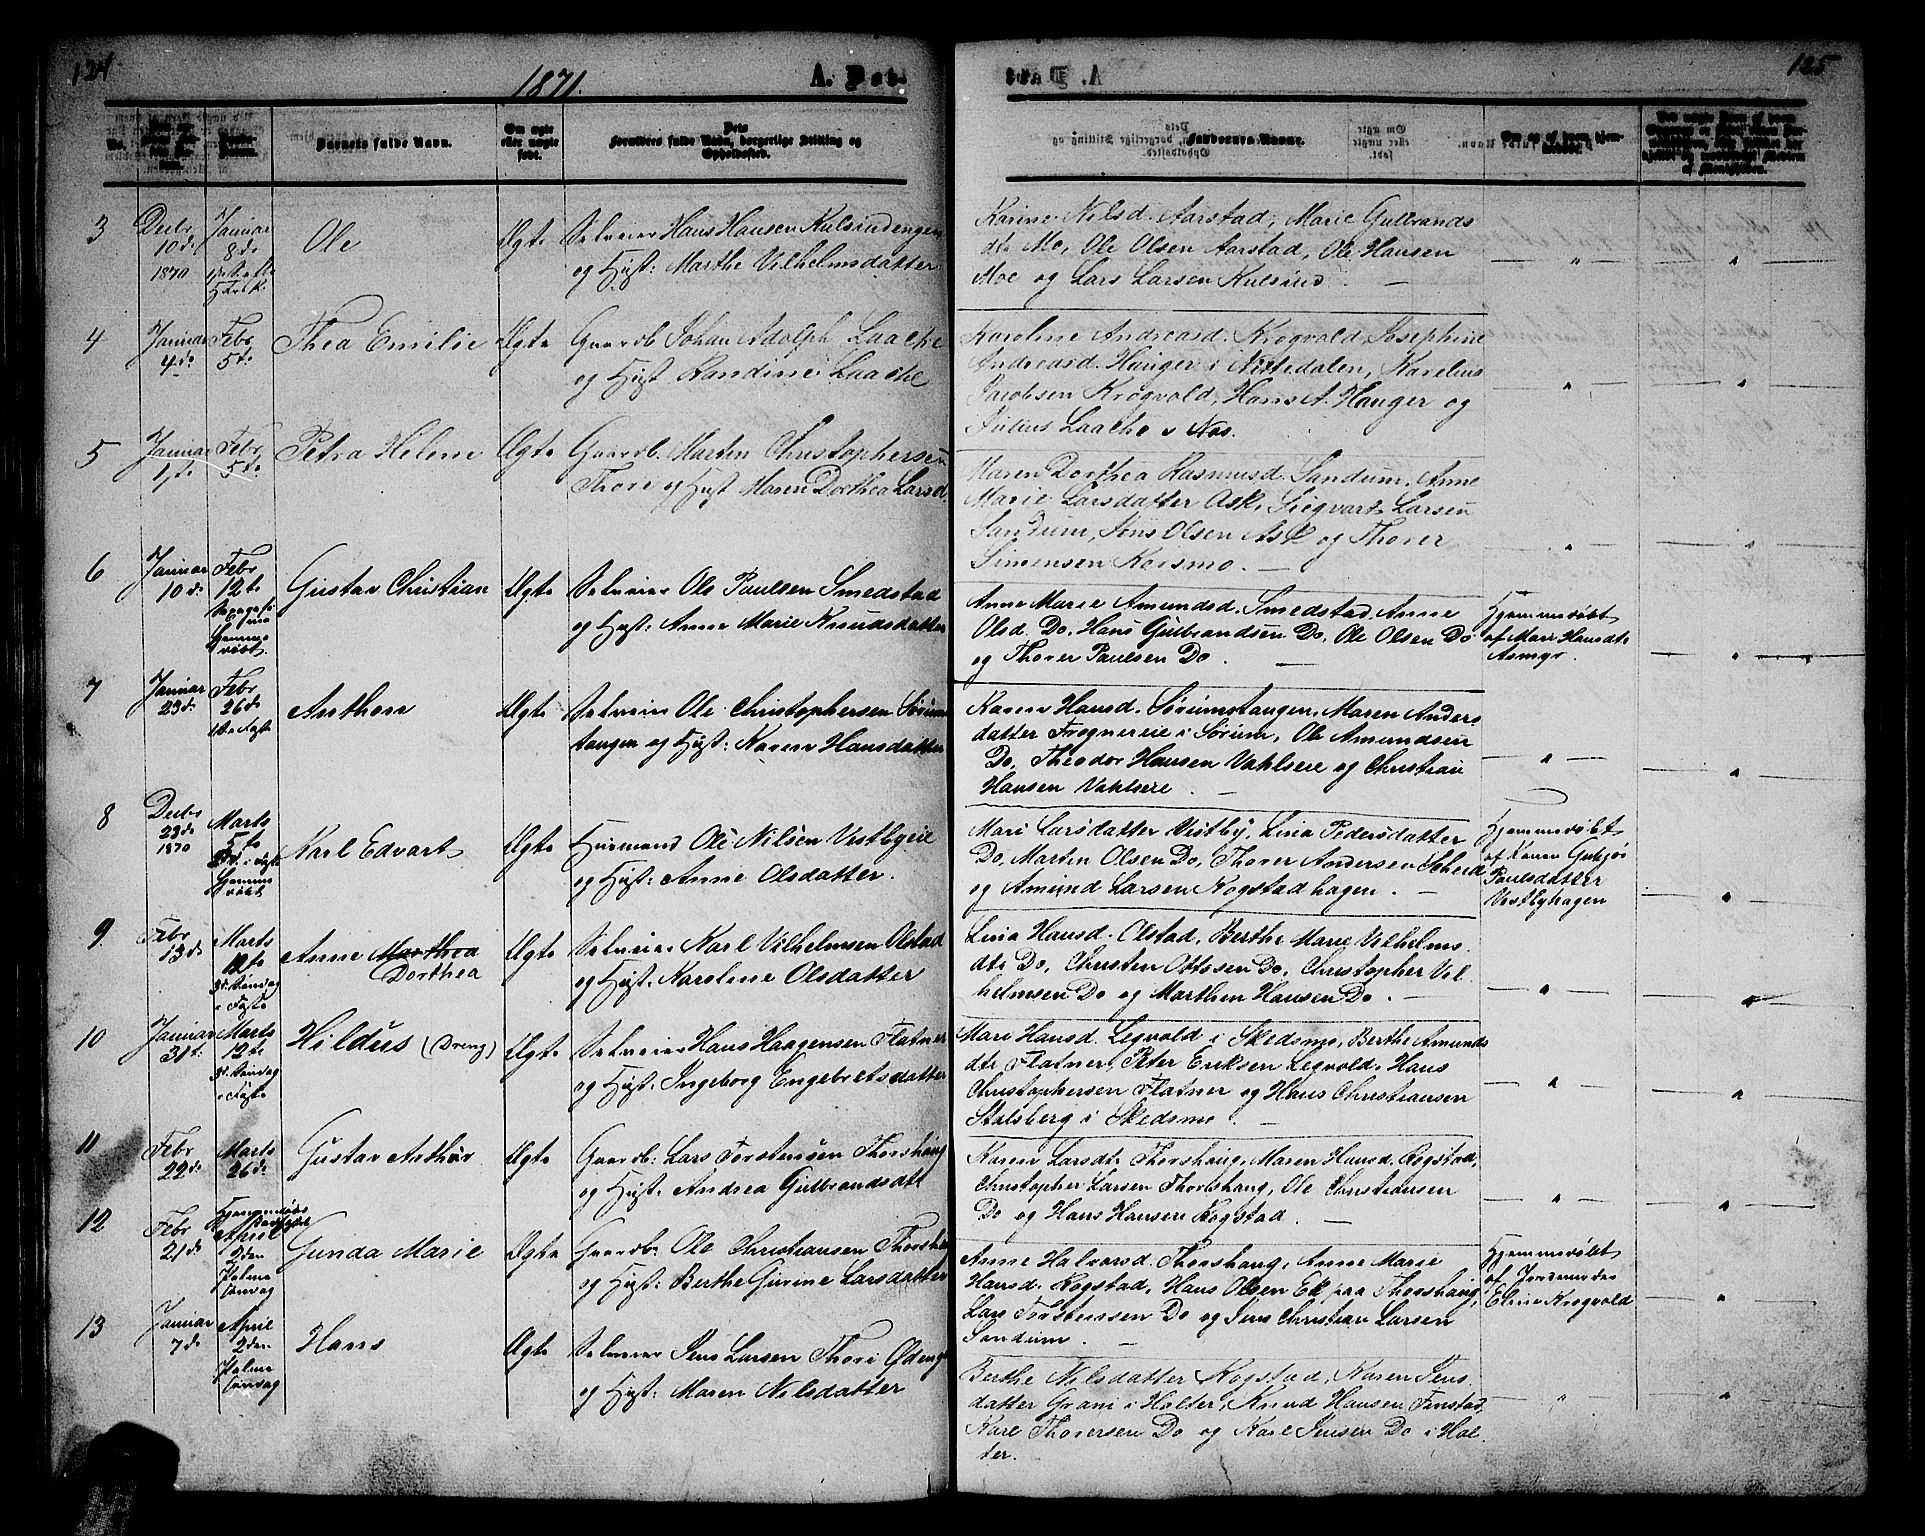 124
1871.
A. Døb
No.
Barnets fulde Navn.
Om ægte eller uægte født.
Dets Forældres fulde Navn, borgerlige Stilling og Opholdssted.
3
Decbr 10de 1870
Januar 8de
Ole
Ægte
Selveier Hans Hansen Kulsrudengen
og Hust: Marthe Vilhelmsdatter
4
Januar 4de
Febr 5te
Thea Emilie
Ægte
Gaardb. Johan Adolph Laache
og Hust Randine Laache
5
Januar 1ste
Febr 5te
Petra Helene
Ægte
Gaardb. Martin Christophersen
Thori og Hust Maren Dorthea Larsd.
6
Januar 10de
Febr 12te
Hjemme
døbt.
Gustav Christian
Ægte
Selveier Ole Paulsen Smedstad
og Hust: Anne Marie Knudsdatter
7
Januar 23de
Febr 26de
1ste i Faste
Anthon
Ægte
Selveier Ole Christophersen Sørum
tangen og Hust: Karen Hansdatter
8
Decbr 23de 1870
Marts 5te
Hjemme
døbt
Karl Edvart
Ægte
Huusmand Ole Nilsen Vestbyeie
og Hust: Anne Olsdatter.
9.
Febr 13de
Marts 12te
3de Søndag
i Faste
Anne Marthea
Dorthea
Ægte
Selveier Karl Vilhelmsen Olstad
og Hust: Karoline Olsdatter
10
Januar 31te
Marts 12te
3de Søndag
i Faste
Hildus (Dreng)
Ægte
Selveier Hans Haagensen Flatner
og Hust: Ingeborg Engebretsdatter
11
Febr 22de
Marts 26de
Gustav Arthur
Ægte
Gaardb: Lars Torstensen Thorshaug
og Hust: Andrea Gulbrandsdt
12
Febr 21de
Hjemmedøbt
April 2den
Palme
søndag
Gunda Marie
Ægte
Gaardb: Ole Christiansen Thorsha
og Hust: Berthe Gurine Larsdatter
13
Januar 7de
April 2den
Palme
søndag
Hans
Ægte
Selveier Jens Larsen Thori Ødeng
og Hust: Maren Nilsdatter
125
Faddernes Navne.
Om og af hvem hjemmedøbt.
Karine Nilsd. Aarstad, Marie Gulbrands
dtr Mo, Ole Olsen Aarstad, Ole Hansen
Moe og Lars Larsen Kulsrud. —
Karoline Andreasd. Krogvold, Josephine
Andreasd. Hauger i Nittedalen, Karelius
Jacobsen Krogvold, Hans A. Hauger og
Julius Laache i Næs.
Maren Dorthea Rasmusd. Sandum, Anne
Marie Larsdatter Ask, Siegvart Larsen
Sandum, Jens Olsen Ask og Thorer
Simensen Korsmo. —
Anne Marie Amundsd. Smedstad, Anne
Olsd. Do, Hans Gulbrandsen Do, Ole Olsen Do
og Thorer Paulsen Do. —
Hjemmedøbt
af Mari Hansdtr
Asmyr.
Karen Hansd. Sørumstangen, Maren Anders
datter Frognereie i Sørum, Ole Amundsen
Do, Theodor Hansen Vahlseie og Christian
Hansen Vahlseie. —
Mari Larsdatter Vestby, Lina Pedersdatter
Do, Martin Olsen Do, Thorer Andersen Scheid
og Amund Larsen Kogstadhagen. —
Hjemmedøbt
af Karen
Paulsdatter
Vestbyhagen
Lina Hansd. Olstad, Berthe Marie Vilhelms
dtr Do, Christen Ottesen Do, Christopher Vil
helmsen Do og Marthin Hansen Do. —
Mari Hansd. Legvold i Skedsmo, Berthe Amunds
dtr Flatner, Peter Eriksen Legvold, Hans
Christophersen Flatner og Hans Christiansen
Stalsberg i Skedsmo. —
Karen Larsdtr Thorshaug, Maren Hansd. Kogstad,
Christopher Larsen Thorshaug, Ole Christiansen
Do og Hans Hansen Kogstad. —
Anne Halvorsd. Thorshaug, Anne Marie
Hansd. Kogstad, Hans Olsen Ek paa Thorshaug,
Lars Torstensen Do og Jens Christian Larsen
Sandum. —
Hjemmedøbt
af Jordemoder
Eline Krogvold
Berthe Nilsdatter Kogstad, Karen Jens
datter Grani i Holter, Knud Hansen Finstad,
Karl Thoresen Do og Karl Jensen Do i Hol
ter.